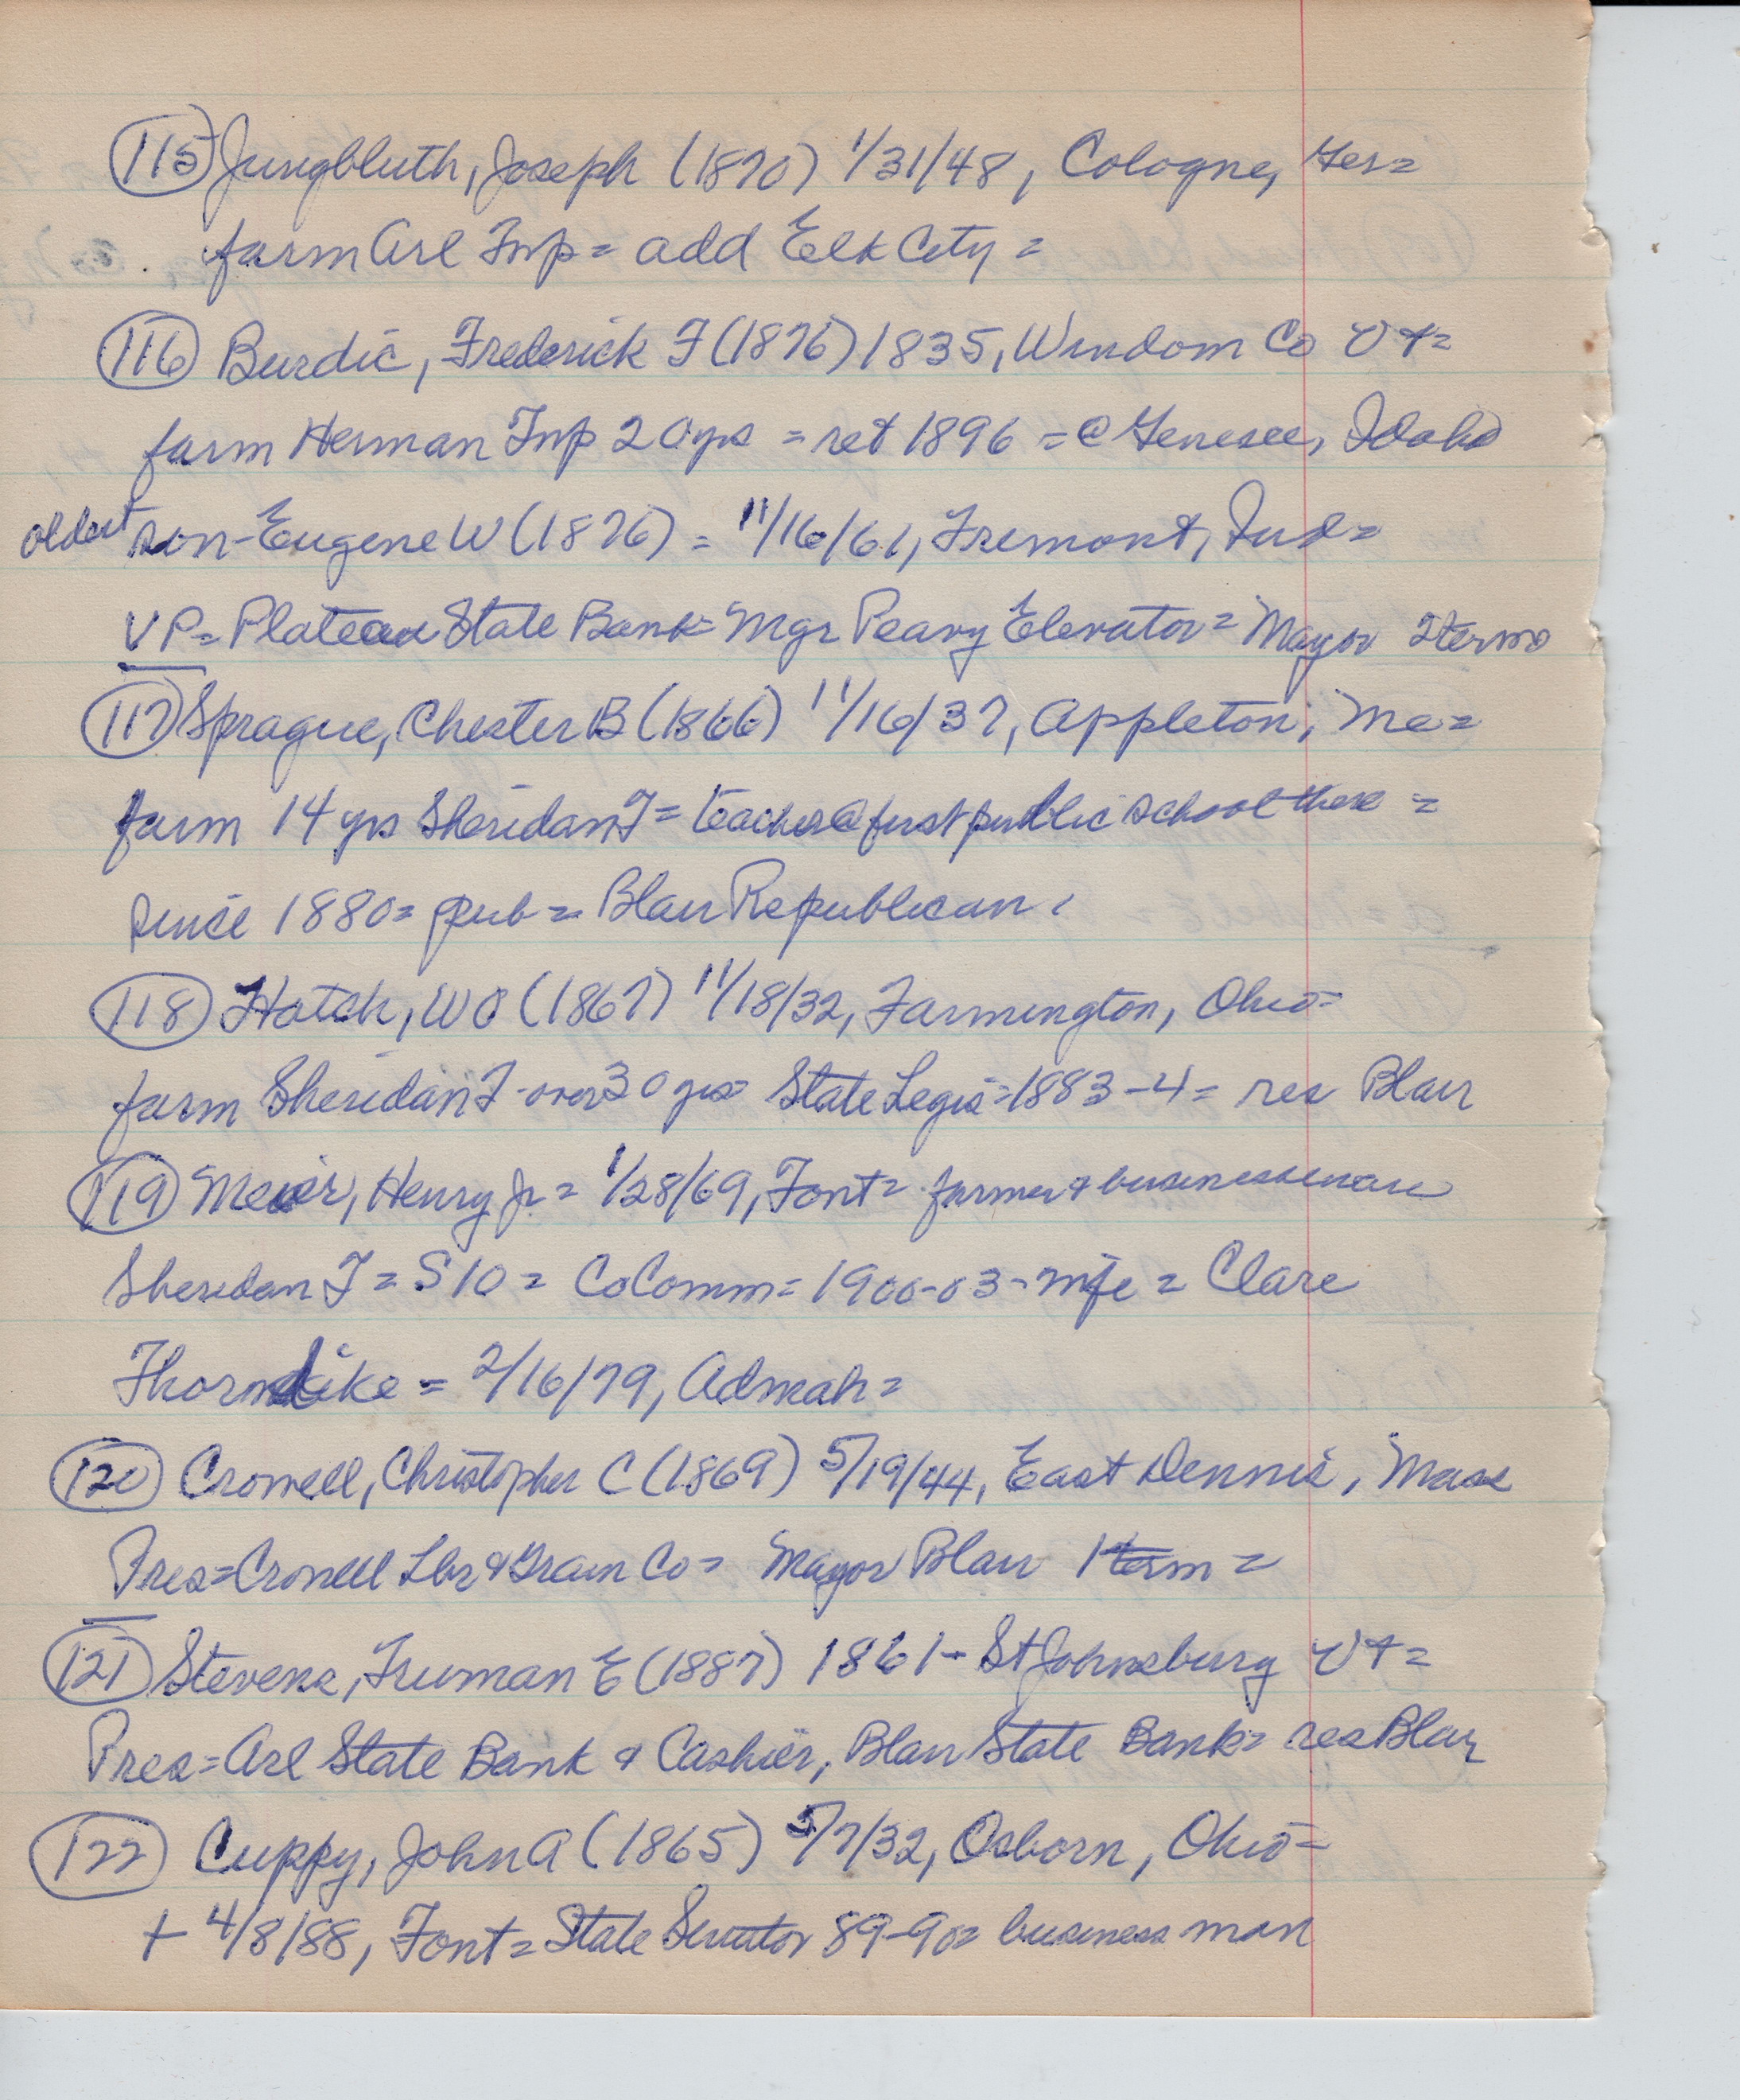 115 Jungbluth, Joseph (1870) 1/31/48, Cologne, Ger=
farm Arl Twp = add Elk City =
116 Burdic, Frederick F (1876) 1835, Windom Co Vt=
farm Herman Twp 20 yrs = ret 1896 = @ Genesee, Idaho
oldest son - Eugene W (1876) = 11/16/61, Fremont, Ind=
VP= Plateau State Bank = Mgr Peavy Elevator = Mayor 2 terms
117 Sprague, Chester B (1866) 11/16/37, Appleton, Me=
farm 14 yrs Sheridan T = teacher @ first public school there =
since 1880 = pub = Blair Republican
118 Hatch, WO (1867) 11/18/32, Farmington, Ohio=
farm Sheridan T - over 30 yrs= State Legis = 1883-4 = res Blair
119 Meier, Henry Jr = 1/28/69, Font= farmer & businessman
Sheridan T = S10 = CoComm = 1900-03 - wife = Clare
Thorndike = 2/16/79, Admah=
120 Crowell, Christopher C (1869) 5/19/44, East Dennis, Mass
Pres= Crowell Lbr & Grain Co = Mayor Blair 1 term =
121 Stevens, Truman E (1887) 1861 - St Johnsburg Vt=
Pres= Arl State Bank & Cashier, Blair State Bank= res Blair
122 Cuppy, John A (1865) 5/7/32, Osborn, Ohio=
+ 4/8/88, Font= State Senator 89-90= business man